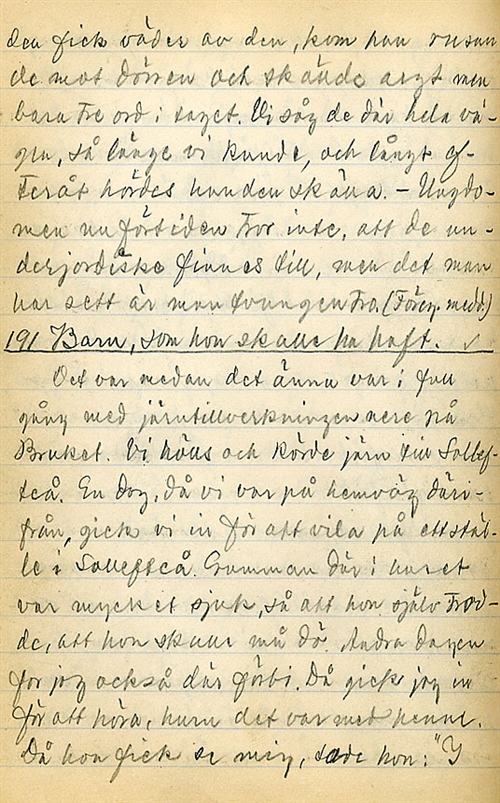 den fick väder av den, kom han rusan
de mot dörren och skällde argt men
bara tre ord i taget. Vi såg de där hela vä-
gen, så länge vi kunde, och långt ef-
teråt hördes hunden skälla. – Ungdo-
men nu för tiden tror inte, att de un-
derjordiske finnes till, men det man
har sett är man tvungen tro. (Föreg. medd.)
191 Barn, som hon skulle ha haft. ✓
Det var medan det ännu var i full
gång med järntillverkningen nere på
Bruket. Vi höus och körde järn till Sollef-
teå. En dag, då vi var på hemväg däri-
från, gick vi in för att vila på ett stäl-
le i Sollefteå. Gumman där i huset
var mycket sjuk, så att hon själv trod-
de, att hon skulle må dö. Andra dagen
for jag också där förbi. Då gick jag in
för att höra, hur det var med henne.
Då hon fick se mig, sade hon: "I